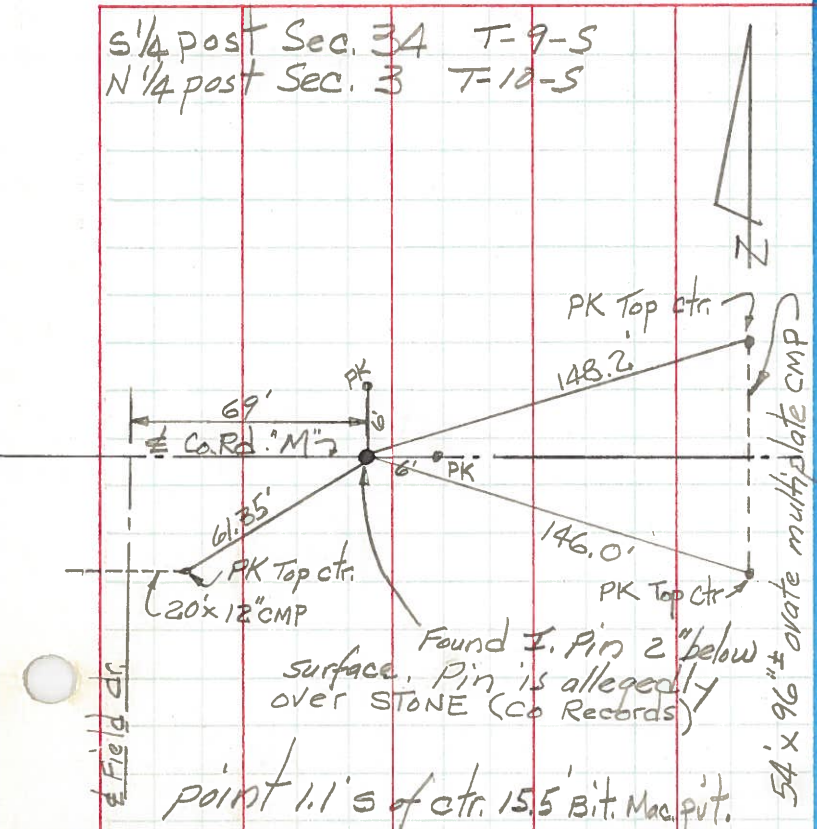 S 1/4 post Sec. 34 T-9-S
N 1/4 post Sec. 3 T-10-S
N
PK Top ctr.
148.2'
PK
6'
69'
℄ Co. Rd. "M"
6'
PK
61.35'
146.0'
PK Top ctr.
20' x 12" CMP
PK Top ctr
54' x 96"± ovate multiplate CMP
Found I. Pin 2" below
surface. Pin is allegedly
over STONE (Co Records)
℄ Field dr.
point 1.1' s of ctr. 15.5' Bit. Mac. pvt.